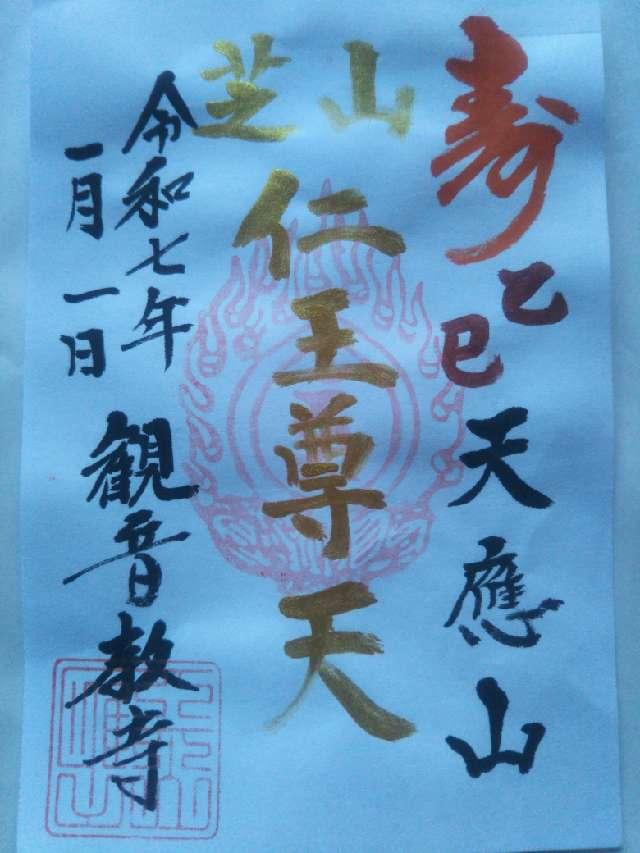 寿
乙巳
天應山
芝山
仁王尊天
令和七年
一月一日
観音教寺